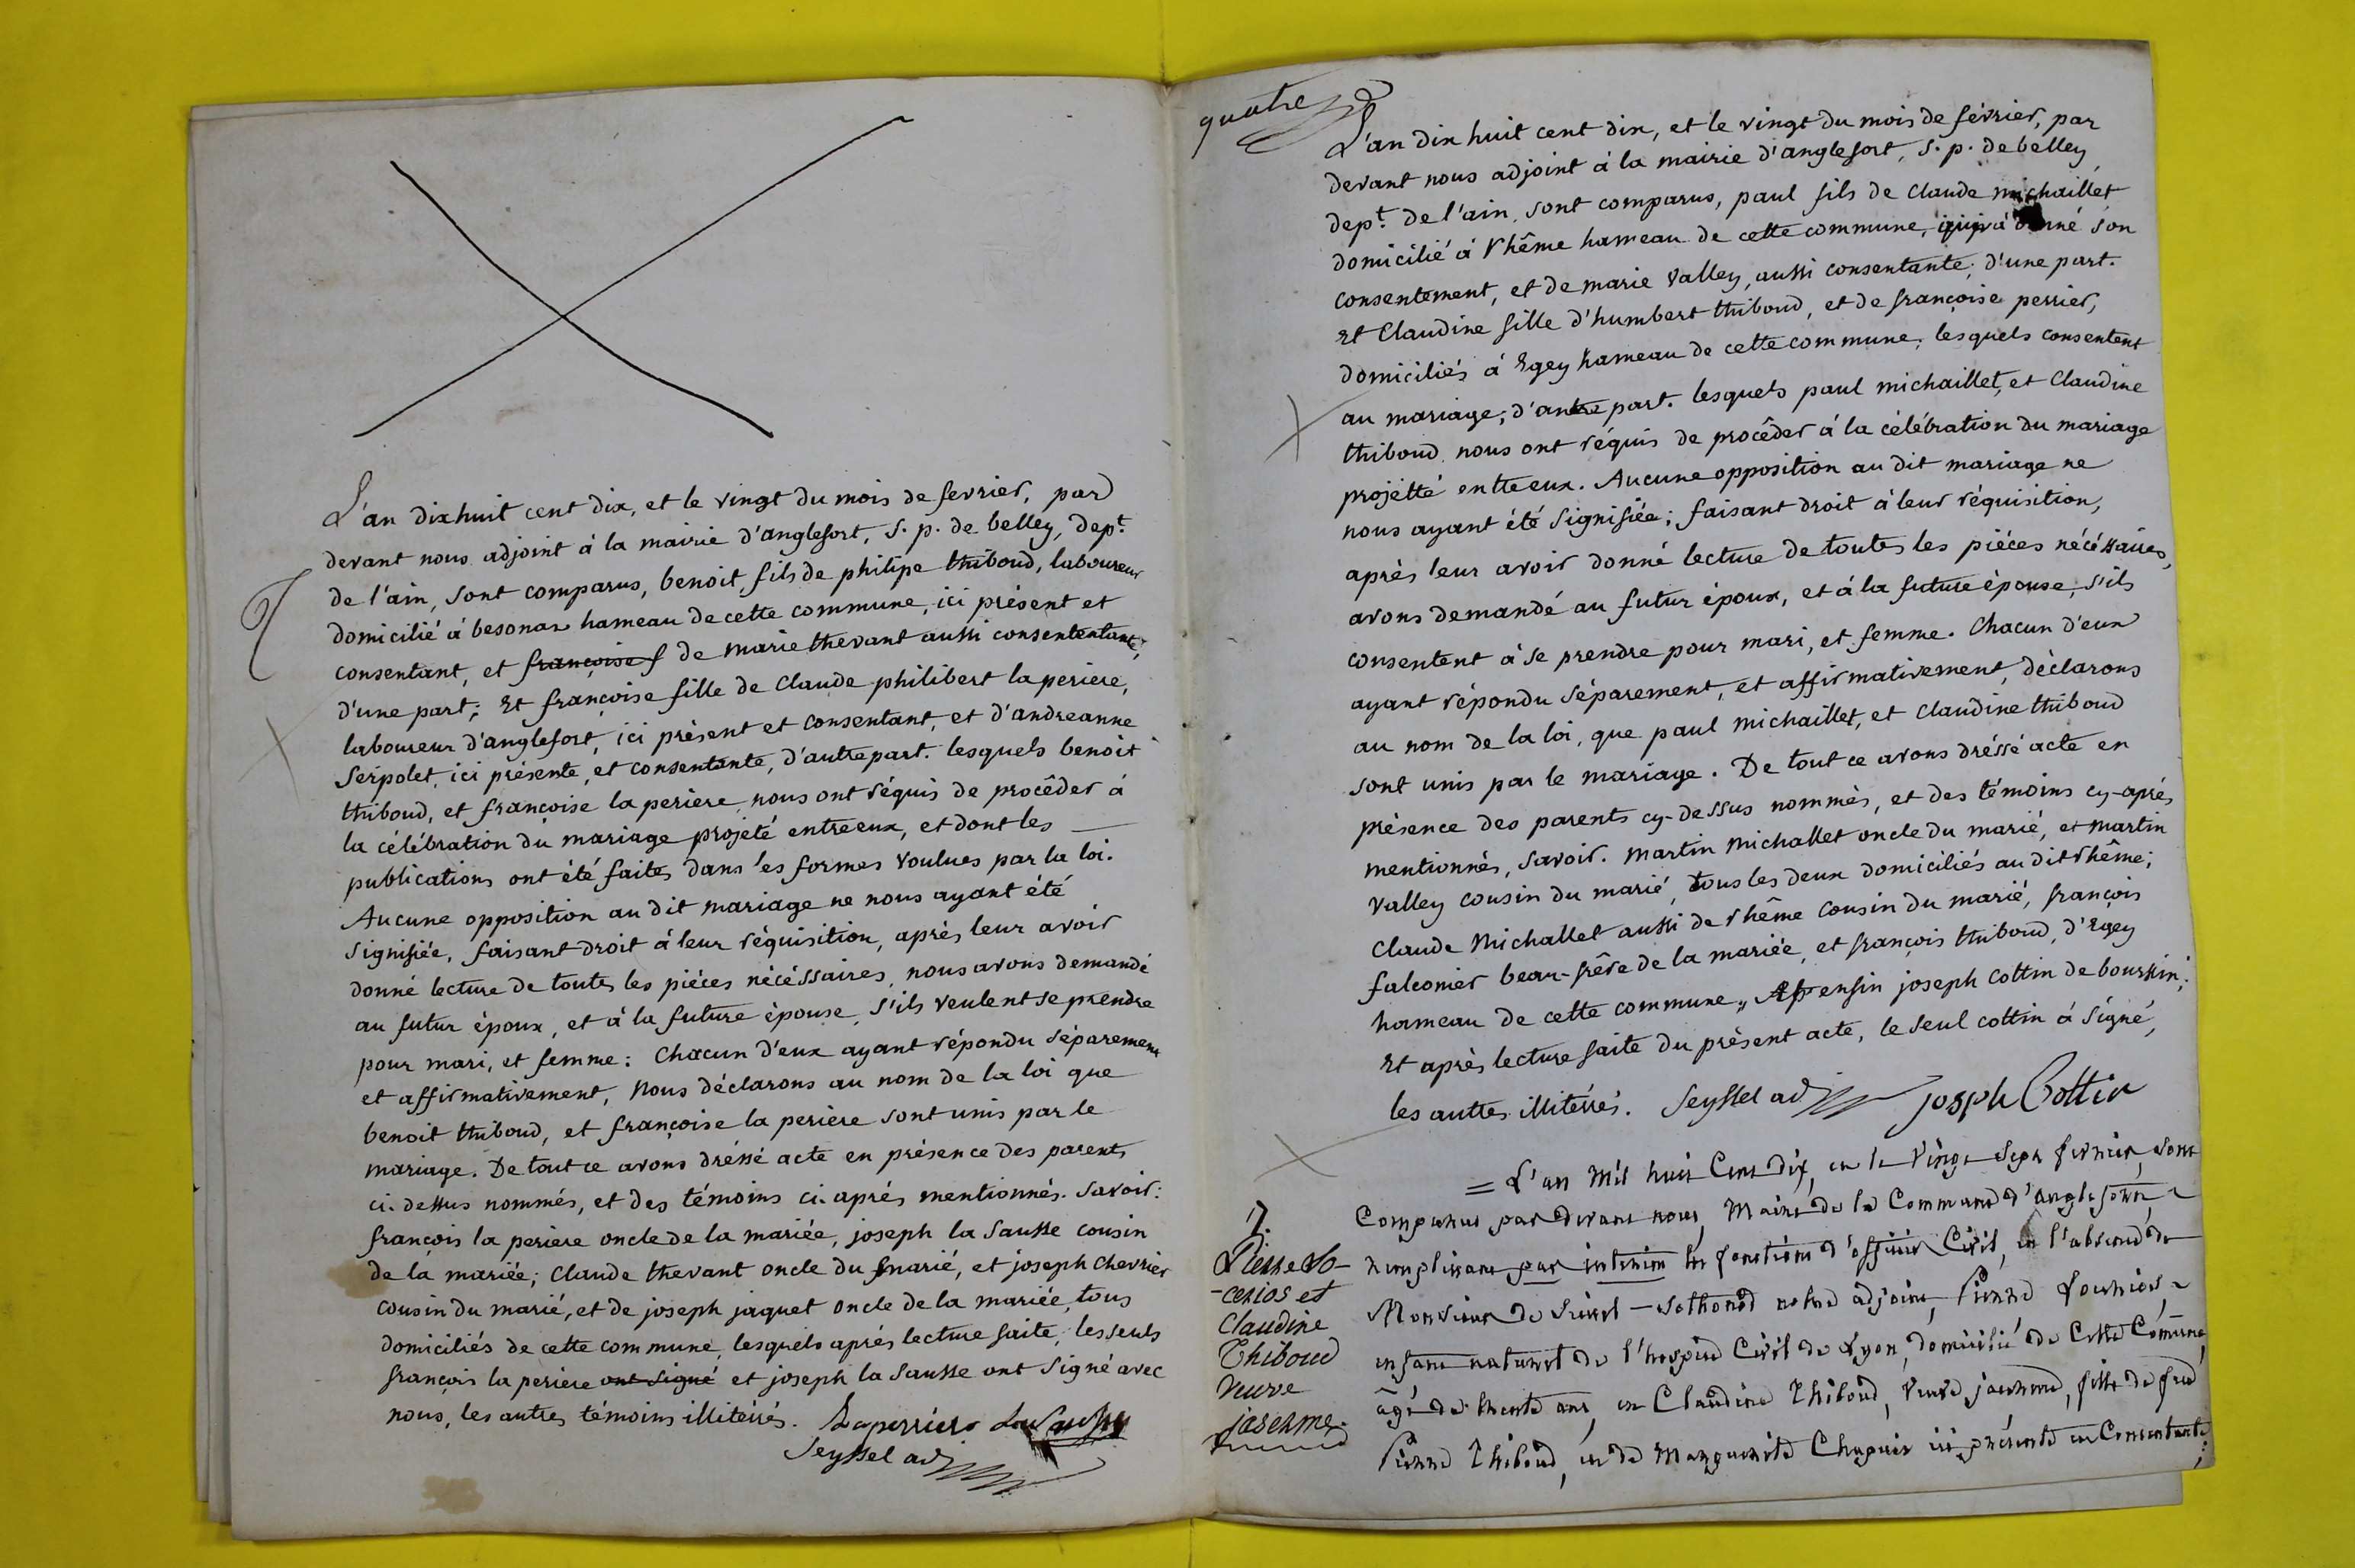 L'an dixhuit cent dix, et le vingt du mois de fevrier, par
devant nous adjoint à la mairie d'anglefort, s. p. de belley, dept.
de l'ain, sont comparus, benoit fils de philipe thiboud, laboureur
domicilié à besonas hameau de cette commune, ici présent et
consentant, et françoise f de marie thevant aussi consententante;
d'une part; Et françoise fille de Claude philibert la periere,
laboureur d'anglefort, ici présent et consentant, et d'andreanne
Serpolet, ici présente, et consentante, d'autre part. lesquels benoit
thiboud, et françoise la periere nous ont réquis de procêder à
la célébration du mariage projeté entre eux, et dont les
publications ont été faites dans les formes voulues par la loi.
Aucune opposition au dit mariage ne nous ayant été
signifiée, faisant droit à leur réquisition, après leur avoir
donné lecture de toutes les piéces nécéssaires, nous avons demandé
au futur époux, et à la future épouse, s'ils veulent se prendre
pour mari, et femme: Chacun d'eux ayant répondu séparement
et affirmativement, Nous déclarons au nom de la loi que
benoit thiboud, et françoise la periere sont unis par le
mariage. De tout ce avons dréssé acte en présence des parents
ci-dessus nommés, et des témoins ci-aprés mentionnés. Savoir:
françois la periere oncle de la mariée, joseph la Sausse cousin
de la mariée; Claude thevant oncle du marié, et joseph chevrier
cousin du marié, et de joseph jaquet oncle de la mariée, tous
domiciliés de cette commune, lesquels aprés lecture faite, les seuls
françois la periere ont signé et joseph la Sausse ont signé avec
nous, les autres témoins illitérrés. Laperriere LaSausse
Seyssel adj
quatre
L'an dix huit cent dix, et le vingt du mois de février, par
devant nous adjoint à la mairie d'anglefort, s. p. de belley
dept. de l'ain, sont comparus, paul fils de Claude michaillet
domicilié à Rhême hameau de cette commune, qui y a donné son
consentement, et de marie Valley, aussi consentante; d'une part.
Et Claudine fille d'humbert thiboud, et de françoise perrier,
domiciliés à Egey hameau de cette commune; lesquels consentent
au mariage; d'autre part. lesquels paul michaillet, et Claudine
thiboud nous ont réquis de procêder à la célébration du mariage
projétté entre eux. Aucune opposition au dit mariage ne
nous ayant été signifiée; faisant droit à leur réquisition,
après leur avoir donné lecture de toutes les piéces nécéssaires,
avons demandé au futur époux, et à la future épouse, s'ils
consentent à se prendre pour mari, et femme. Chacun d'eux
ayant répondu séparement, et affirmativement, déclarons
au nom de la loi, que paul michaillet, et Claudine thiboud
sont unis par le mariage. De tout ce avons dréssé acte en
présence des parents cy-dessus nommés, et des témoins cy-aprés
mentionnés, savoir. Martin Michallet oncle du marié, et martin
Valley cousin du marié, tous les deux domiciliés au dit Rhême;
Claude Michallet aussi de Rhême cousin du marié, françois
falconier beau-frêre de la mariée, et françois thiboud, d'Egey
hameau de cette commune, enfin joseph Cottin de boursin;
Et après lecture faite du présent acte, le seul cottin à signé,
les autres illitérrés. Seyssel adj joseph Cottin
= L'an mil huit Cent dix, et le vingt sept fevrier, sont
Comparus par devant nous Maire de la Commune d'anglefort,
remplissant par interim les fonctions d'officier Civil, en l'absence de
Monsieur de Seissel - sothonod notre adjoint,
enfant naturel de l'hospice Civil de Lyon, domicilié de Cette Commune,
âgé de trente ans, et Claudine Thiboud, Veuve jaserme, fille de feu
Pierre Thiboud, et de Marguerite Chapuis ici présente et Consentante;
7.
Pierre
et
Claudine
Thiboud
veuve
jaserme.